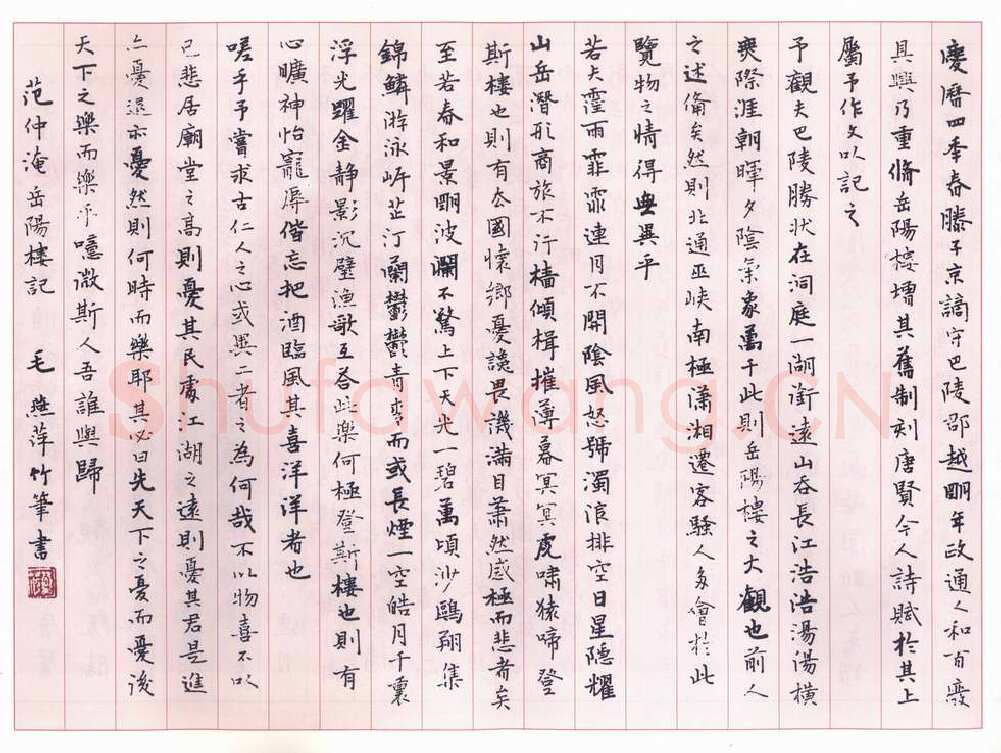 慶曆四年春滕子京謫守巴陵郡越朙年政通人和百廢
具興乃重脩岳陽樓增其舊制刻唐賢今人詩賦於其上
屬予作文以記之
予觀夫巴陵勝狀在洞庭一湖銜遠山吞長江浩浩湯湯橫
無際涯朝暉夕陰氣象萬千此則岳陽樓之大觀也前人
之述備矣然則北通巫峽南極瀟湘遷客騷人多會於此
覽物之情得無異乎
若夫霪雨霏霏連月不開陰風怒號濁浪排空日星隱耀
山岳潛形商旅不行檣傾楫摧薄暮冥冥虎嘯猿啼登
斯樓也則有去國懷鄉憂讒畏譏滿目蕭然感極而悲者矣
至若春和景朙波瀾不驚上下天光一碧萬頃沙鷗翔集
錦鱗游泳岸芷汀蘭鬱鬱青青而或長煙一空皓月千里
浮光躍金靜影沉璧漁歌互荅此樂何極登斯樓也則有
心曠神怡寵辱偕忘把酒臨風其喜洋洋者也
嗟乎予嘗求古仁人之心或異二者之為何哉不以物喜不以
己悲居廟堂之高則憂其民處江湖之遠則憂其君是進
亦憂退亦憂然則何時而樂耶其必曰先天下之憂而憂後
天下之樂而樂乎噫微斯人吾誰與歸
范仲淹岳陽樓記 毛燕萍竹筆書
Shufawang.CN